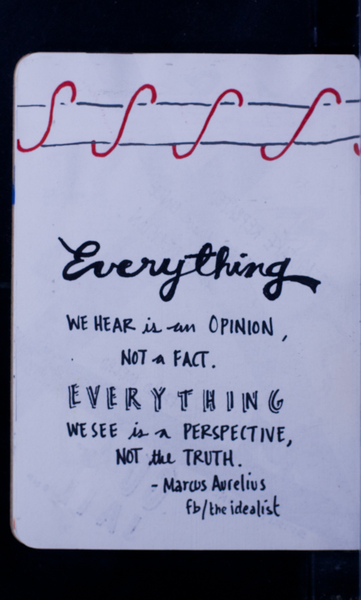 Everything
WE HEAR is an OPINION,
NOT a FACT.
EVERYTHING
WE SEE is a PERSPECTIVE,
NOT the TRUTH.
- Marcus Aurelius
fb/the idealist